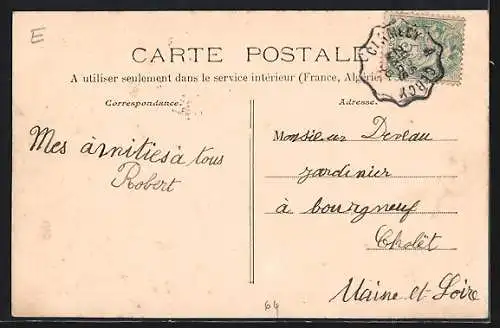 E
CLAMECY A CERCY
CARTE POSTALE
A utiliser seulement dans le service intérieur (France, Algérie,
Correspondance.
Adresse.
Mes àmitiés à tous
Robert
Monsieur Deveau
jardinier
à bourgneuf
Cholèt
Maine et Loire
64